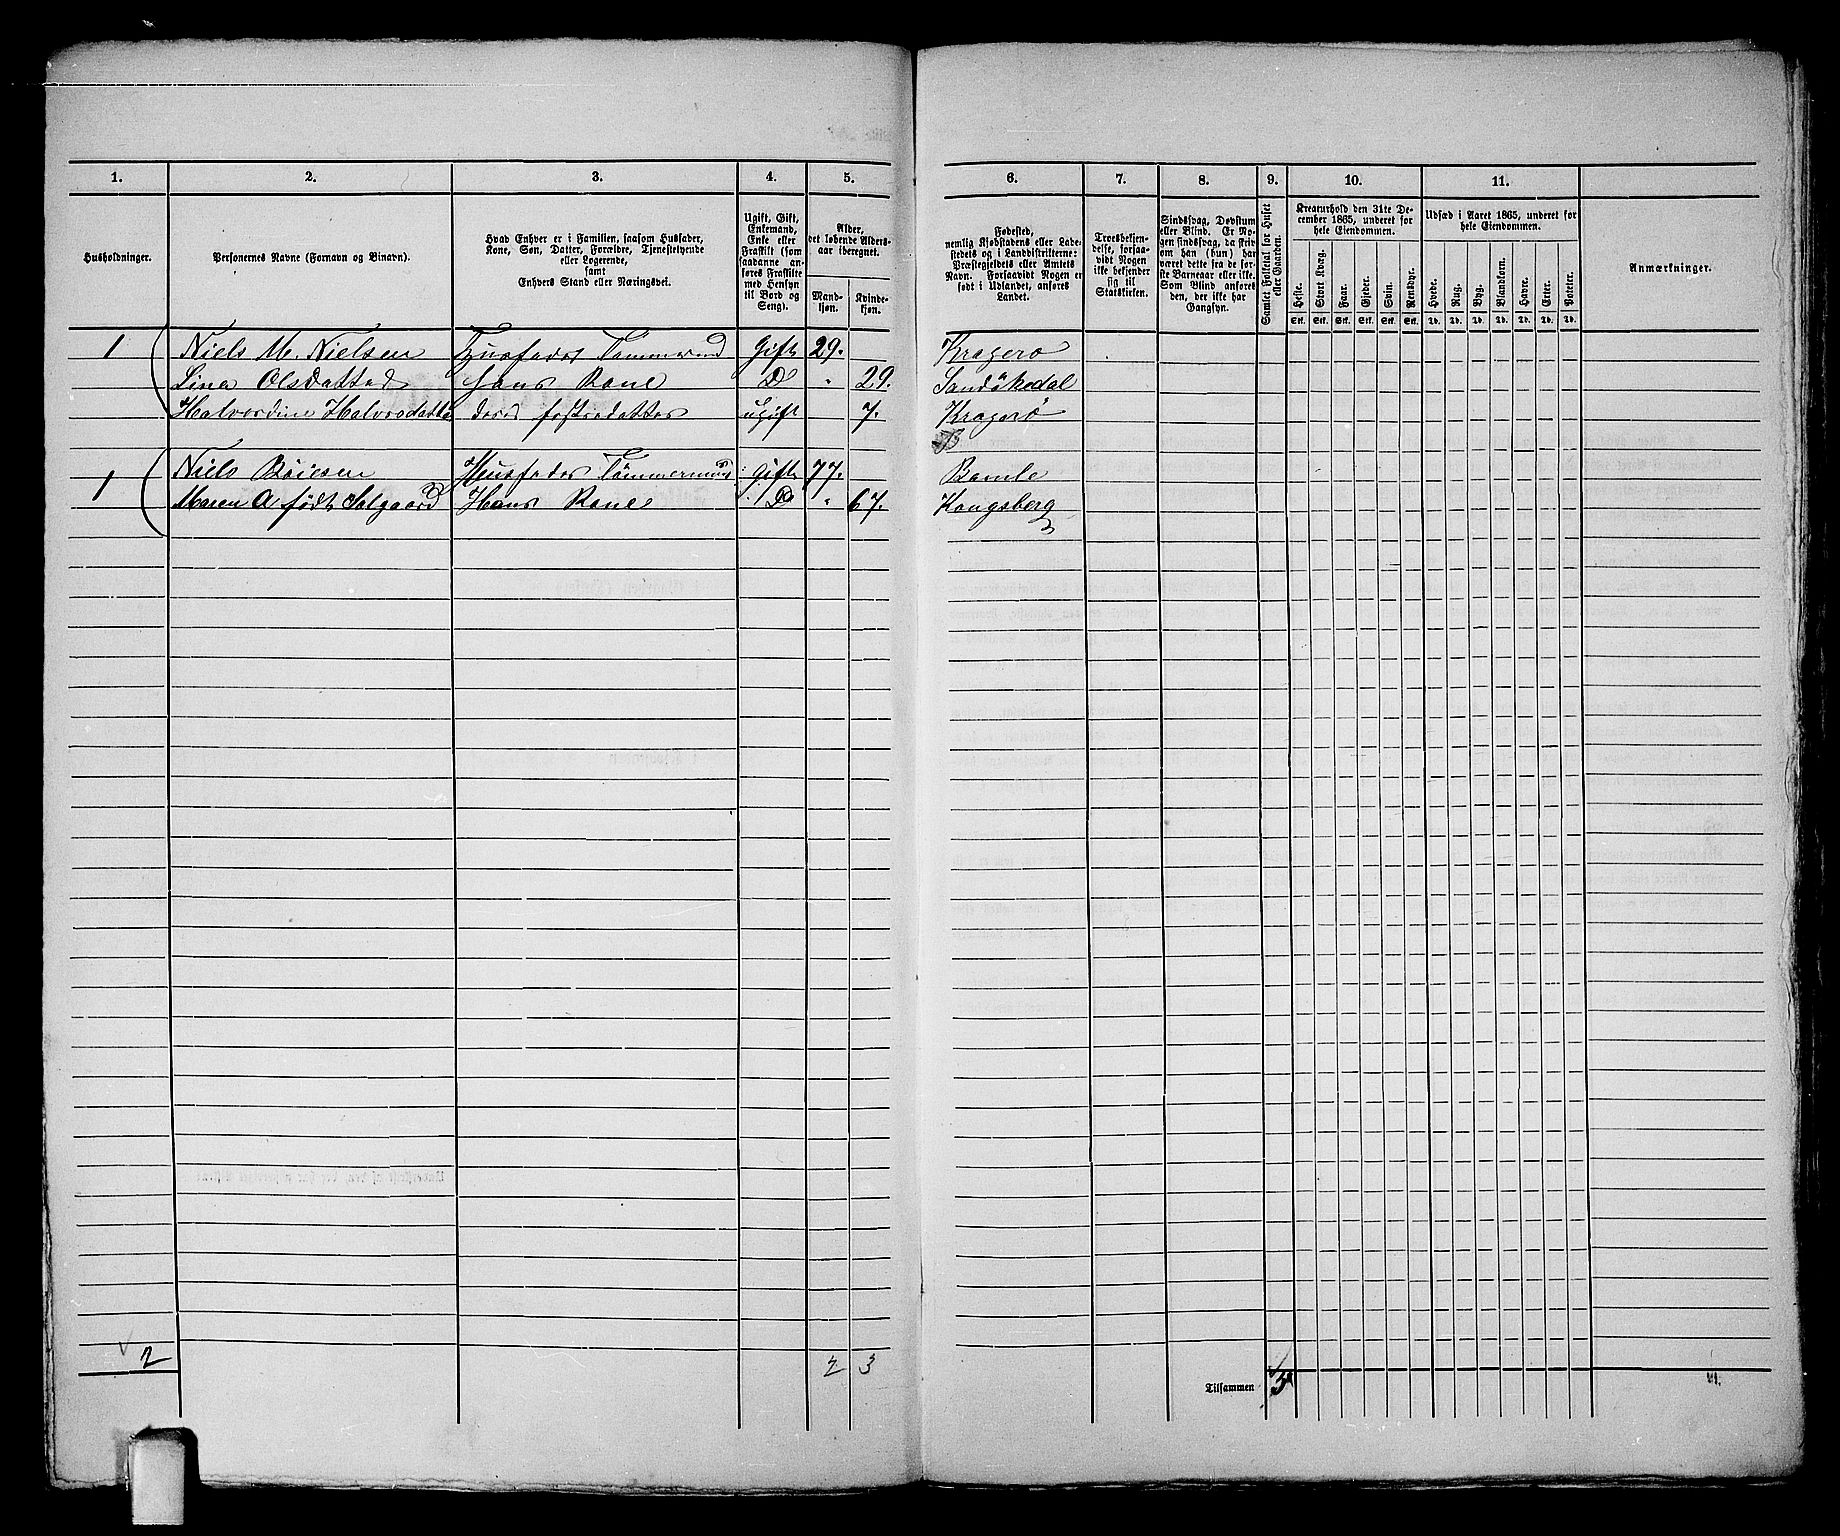 1. 2. 3. 4. 5. 6. 7. 8. 9. 10. 11.
Husholdninger.
Personernes Navne (Fornavn og Binavn).
Hvad Enhver er i Familien, saasom Husfader,
Kone, Søn, Datter, Forældre, Tjenestetyende
eller Logerende,
samt
Enhvers Stand eller Næringsvei.
Ugift, Gift,
Enkemand,
Enke eller
Fraskilt (som
saadanne an-
føres Fraskilte
med Hensyn
til Bord og
Seng).
Alder,
det løbende Alders-
aar iberegnet.
Mand-
kjøn.
Kvinde-
kjøn.
Fødested,
nemlig Kjøbstadens eller Lade-
stedets og i Landdistrikterne:
Præstegjeldets eller Amtets
Navn. Forsaavidt Nogen er
født i Udlandet, anføres
Landet.
Troesbekjen-
delse, forsaa-
vidt Nogen
ikke bekjender
sig til
Statskirken.
Sindssvag, Døvstum
eller Blind. Er No-
gen sindssvag, da skriv
om han (hun) har
været dette fra de før-
ste Barneaar eller ikke.
Som Blind anføres
den, der ikke har
Gangsyn.
Samlet Folketal for Huset
eller Gaarden.
Kreaturhold den 31te De-
cember 1865, underet for
hele Eiendommen.
Heste. Stort Kvæg. Faar. Gjeder. Svin. Rensdyr.
Stk. Stk. Stk. Stk. Stk. Stk.
Udsæd i Aaret 1865, underet for
hele Eiendommen.
Hvede. Rug. Byg. Blandkorn. Havre. Erter. Poteter.
Td. Td. Td. Td. Td. Td. Td.
Anmærkninger.
1 Niels M. Nielsen Husfader Tømmermd Gift 29. Kragerø
Lina Olsdatter Hans Kone D " 29. Sandökedal
Halvordine Halvorsdatter deres fostredatter ugift 7. Kragerö
1 Niels Böiesen Husfader Tömmermand Gift 77. Bamle
Maren A født Solgaard Hans Kone D " 67. Kongsberg
2 2 3
Tilsammen 5